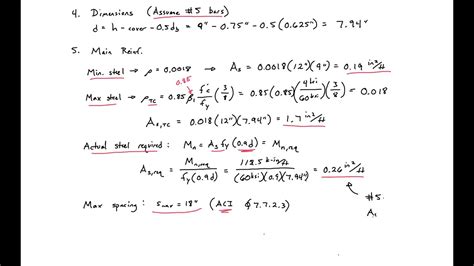 4. Dimensions (Assume #5 bars)
d = h - cover - 0.5db = 9" - 0.75" - 0.5(0.625") = 7.94"
5. Main Reinf.
Min. steel → ρ = 0.0018 → As = 0.0018(12")(9") = 0.19 in²/ft
0.85
Max steel → ρTC = 0.85 β1 f'c/fy (3/8) = 0.85(0.85)(4ksi/60ksi)(3/8) = 0.018
As,TC = 0.018(12")(7.94") = 1.7 in²/ft
Actual steel required: Mn = As fy (0.9d) = Mn,req
As,req = Mn,req / fy(0.9d) = 118.5 k-in/ft / (60ksi)(0.9)(7.94") = 0.26 in²/ft
#5
A
Max spacing: smax = 18" (ACI § 7.7.2.3)